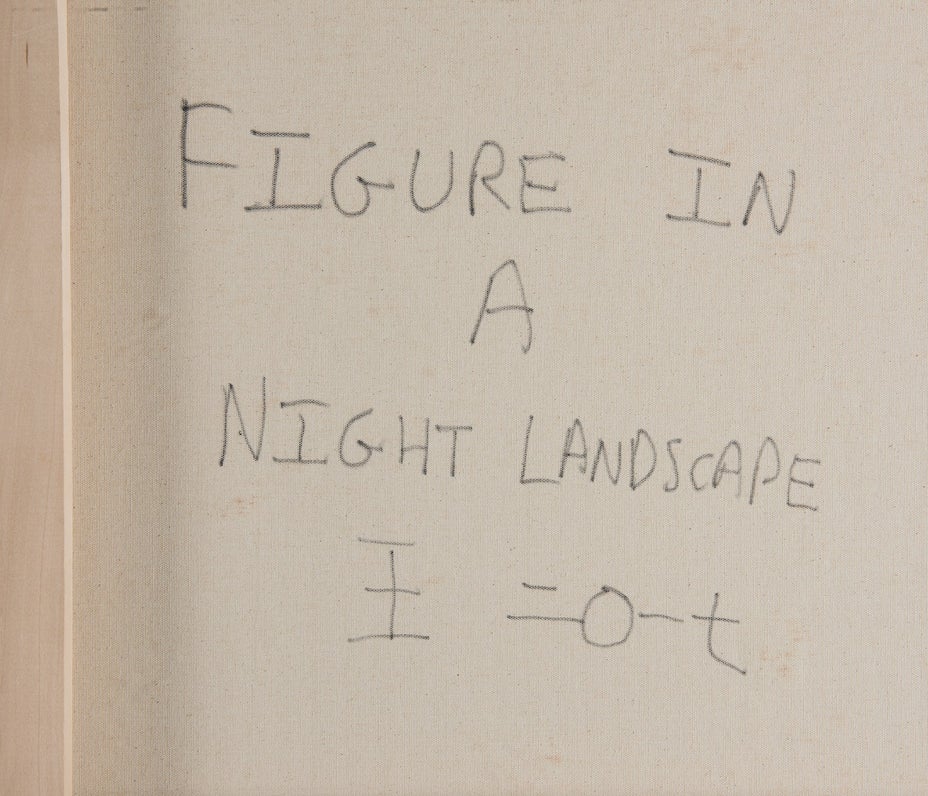 FIGURE IN
A
NIGHT LANDSCAPE